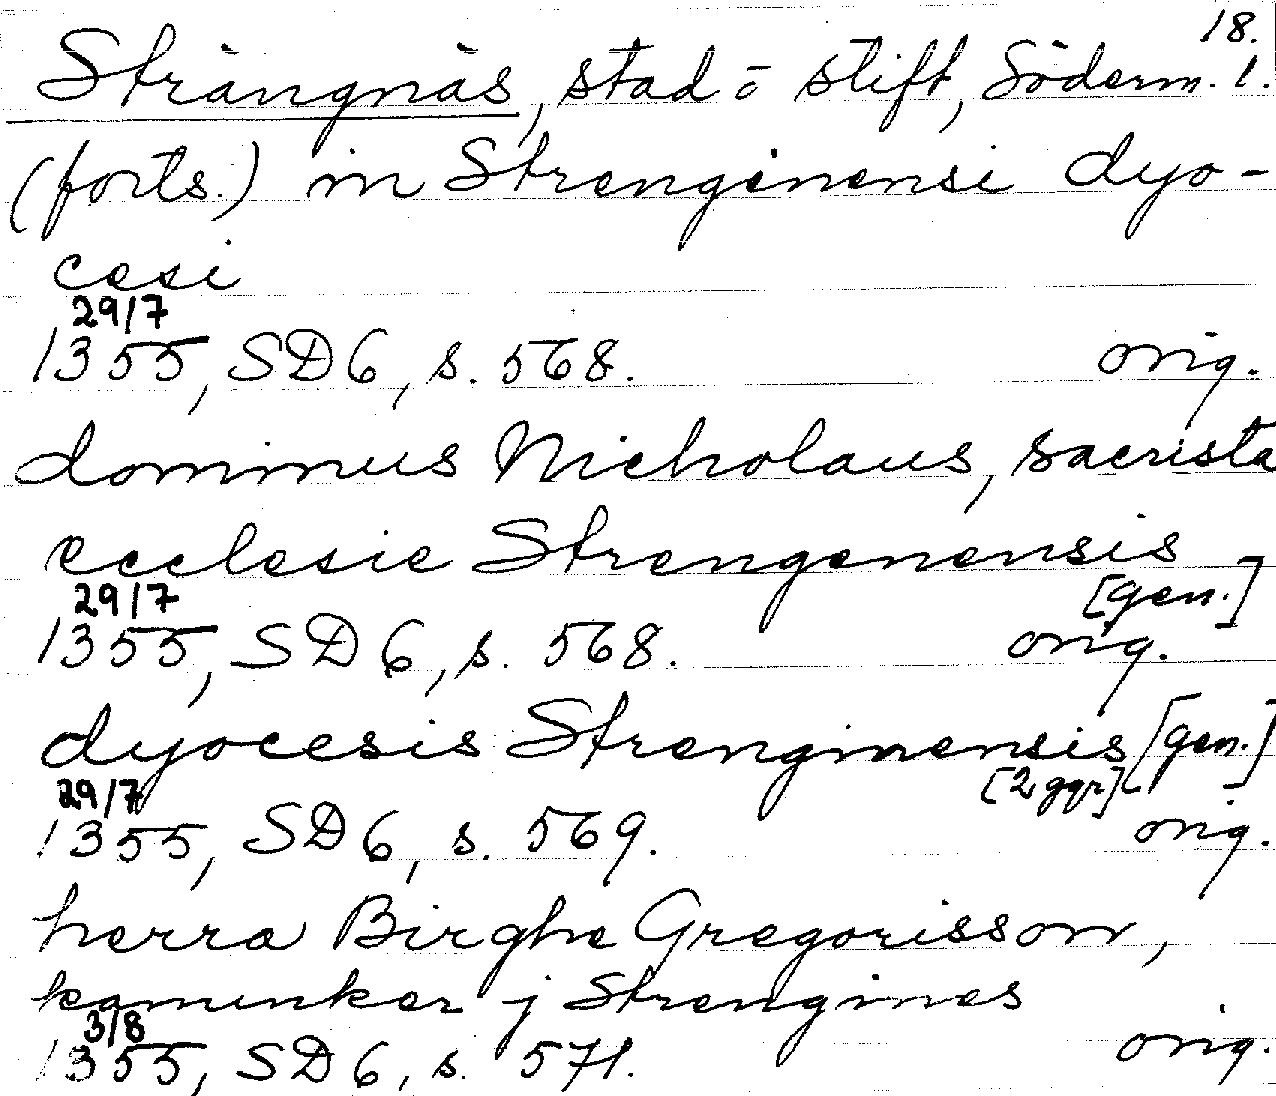 18.
Strängnäs, stad o stift, Söderm. l.
(forts.) in Strenginensi dyo-
cesi
29/7
1355, SD 6, s. 568. orig.
dominus Nicholaus, sacrista
ecclesie Strengenensis
[gen.]
29/7
1355, SD 6, s. 568. orig.
dyocesis Strenginensis [gen.]
[2 ggr]
29/7
1355, SD 6, s. 569. orig.
herra Birghe Gregorisson,
kamunker j Strengines
3/8
1355, SD 6, s. 571. orig.